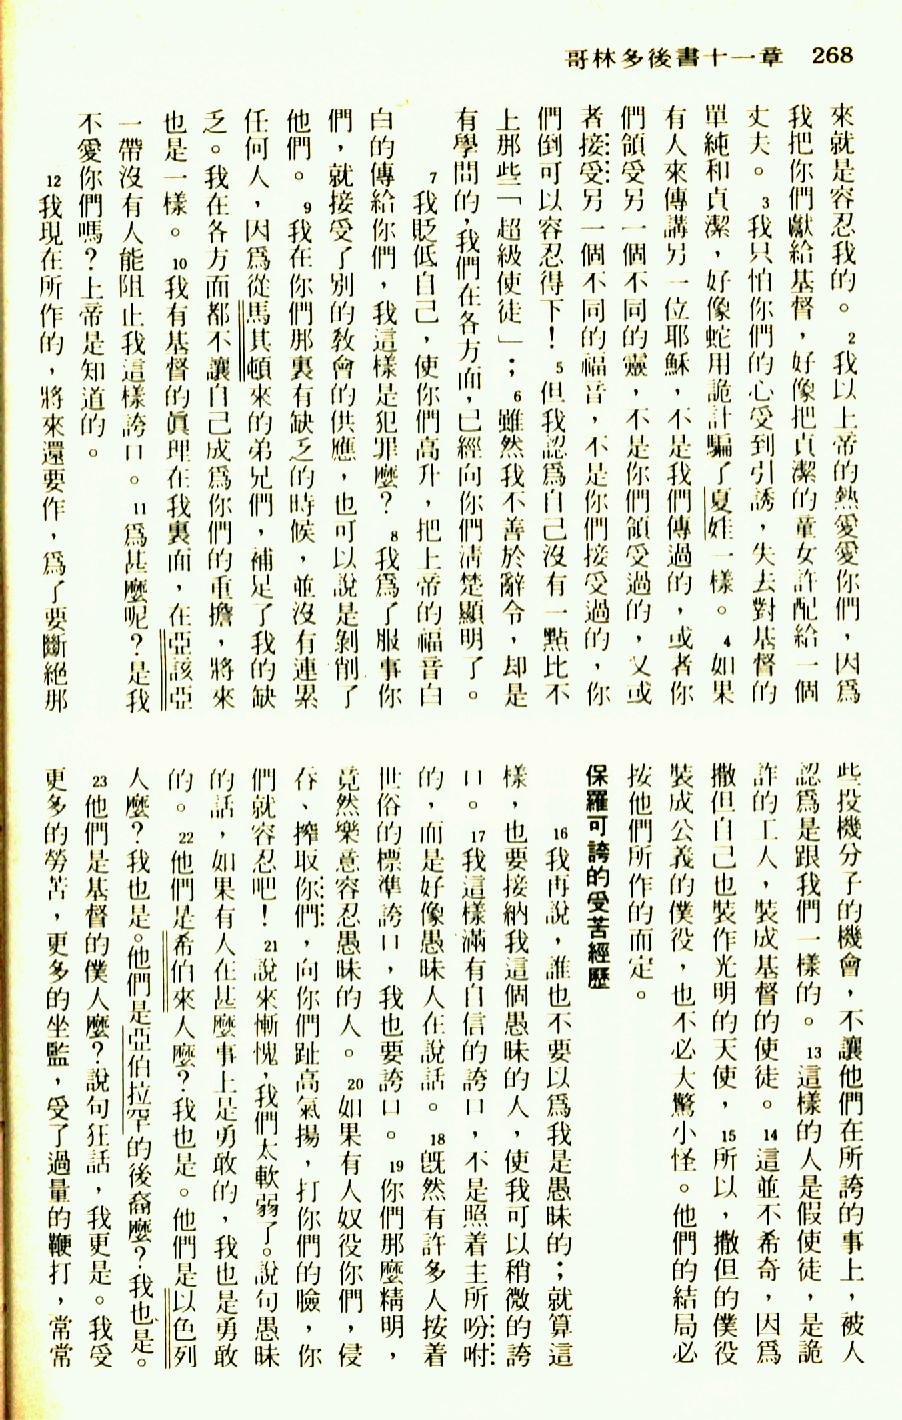 268 哥林多後書十一章
來就是容忍我的。2我以上帝的熱愛愛你們，因爲
我把你們獻給基督，好像把貞潔的童女許配給一個
丈夫。3我只怕你們的心受到引誘，失去對基督的
單純和貞潔，好像蛇用詭計騙了夏娃一樣。4如果
有人來傳講另一位耶穌，不是我們傳過的，或者你
們領受另一個不同的靈，不是你們領受過的，又或
者接受另一個不同的福音，不是你們接受過的，你
們倒可以容忍得下！5但我認爲自己沒有一點比不
上那些「超級使徒」；6雖然我不善於辭令，却是
有學問的，我們在各方面，已經向你們淸楚顯明了。
7我貶低自己，使你們高升，把上帝的福音白
白的傳給你們，我這樣是犯罪麼？8我爲了服事你
們，就接受了別的敎會的供應，也可以說是剝削了
他們。9我在你們那裏有缺乏的時候，並沒有連累
任何人，因爲從馬其頓來的弟兄們，補足了我的缺
乏。我在各方面都不讓自己成爲你們的重擔，將來
也是一樣。10我有基督的眞理在我裏面，在亞該亞
一帶沒有人能阻止我這樣誇口。11爲甚麼呢？是我
不愛你們嗎？上帝是知道的。
12我現在所作的，將來還要作，爲了要斷絕那
些投機分子的機會，不讓他們在所誇的事上，被人
認爲是跟我們一樣的。13這樣的人是假使徒，是詭
詐的工人，裝成基督的使徒。14這並不希奇，因爲
撒但自己也裝作光明的天使，15所以，撒但的僕役
裝成公義的僕役，也不必大驚小怪。他們的結局必
按他們所作的而定。
保羅可誇的受苦經歷
16我再說，誰也不要以爲我是愚昧的；就算這
樣，也要接納我這個愚昧的人，使我可以稍微的誇
口。17我這樣滿有自信的誇口，不是照着主所吩咐
的，而是好像愚昧人在說話。18旣然有許多人按着
世俗的標準誇口，我也要誇口。19你們那麼精明，
竟然樂意容忍愚昧的人。20如果有人奴役你們，侵
吞、搾取你們，向你們趾高氣揚，打你們的臉，你
們就容忍吧！21說來慚愧，我們太軟弱了。說句愚昧
的話，如果有人在甚麼事上是勇敢的，我也是勇敢
的。22他們是希伯來人麼？我也是。他們是以色列
人麼？我也是。他們是亞伯拉罕的後裔麼？我也是。
23他們是基督的僕人麼？說句狂話，我更是。我受
更多的勞苦，更多的坐監，受了過量的鞭打，常常